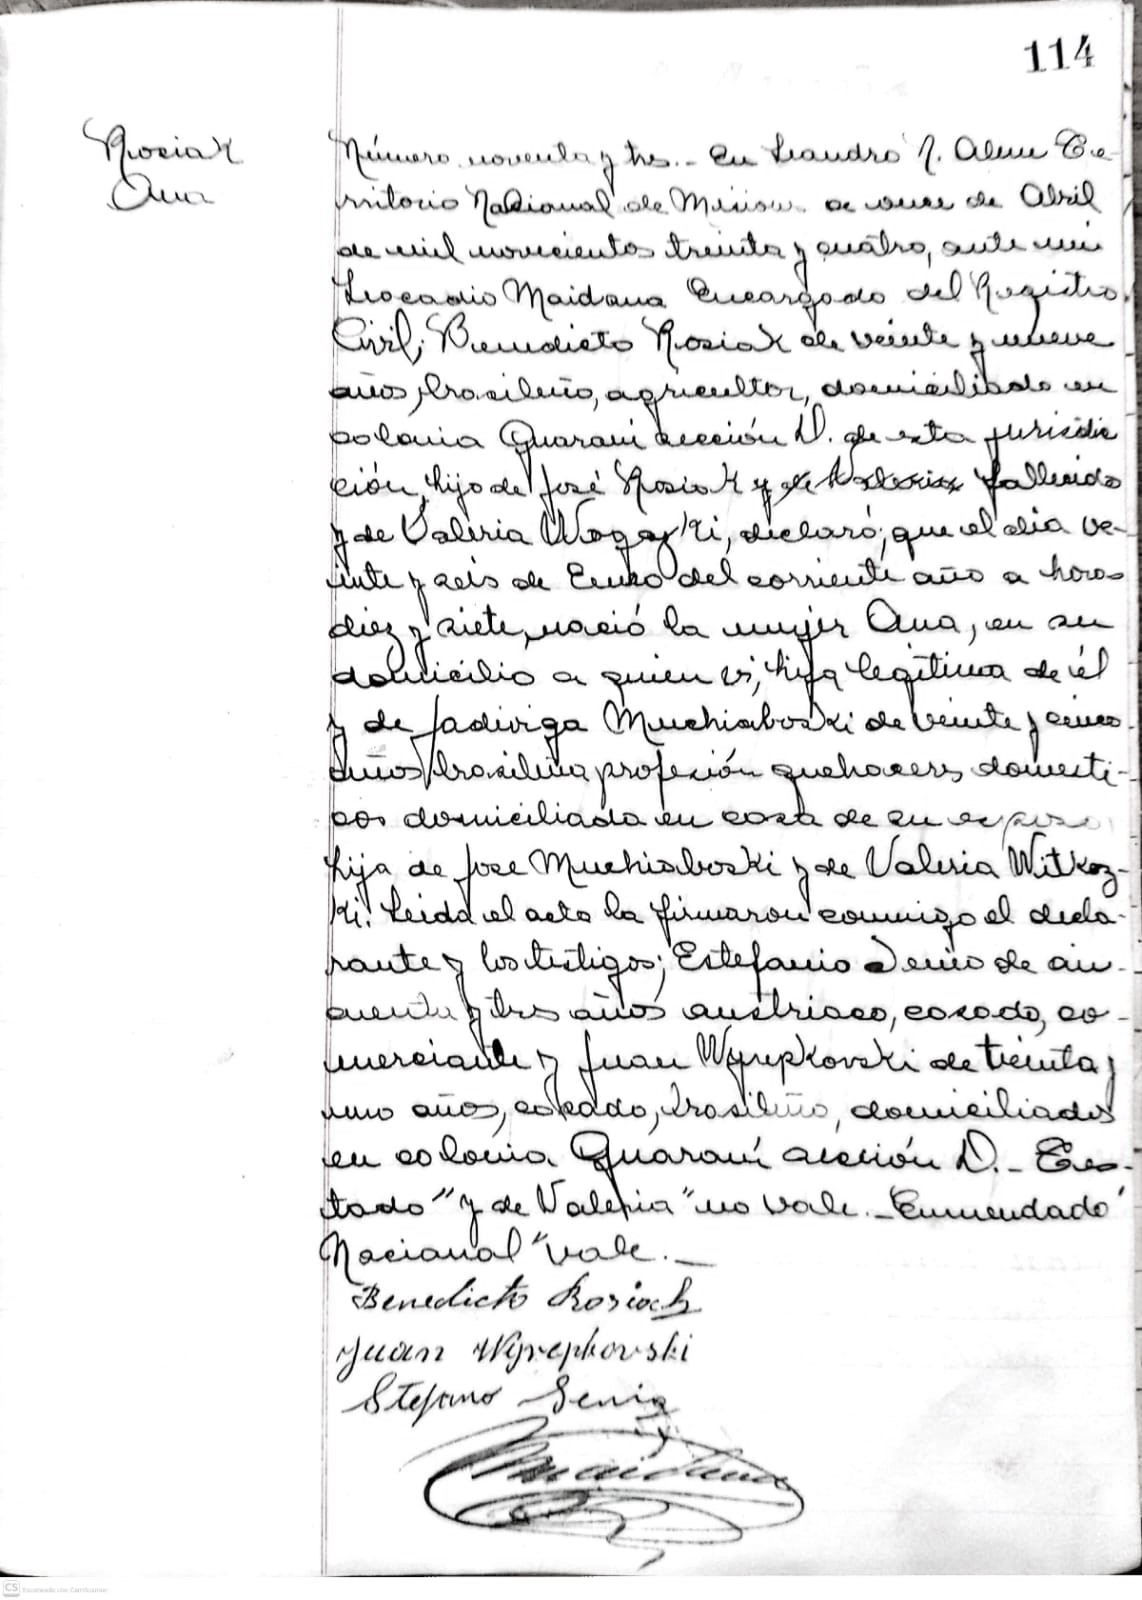 114
Rosiak
Ana
Número noventa y tres.- En Leandro N. Alem Te-
rritorio Nacional de Misiones a once de Abril
de mil novecientos treinta y cuatro, ante mi
Leocadio Maidana Encargado del Registro
Civil; Benedicto Rosiak de veinte y nueve
años, brasileño, agricultor, domiciliado en
colonia Guaraní sección D. de esta jurisdic
ción, hijo de José Rosiak y de Valeria fallecido
y de Valeria Wogazki, declaró; que el dia ve-
inte y seis de Enero del corriente año a horas
diez y siete, nació la mujer Ana, en su
domicilio a quien vi, hija legítima de él
y de Jadiviga Muchiaboski de veinte y cinco
años, brasileña, profesión quehaceres domesti-
cos domiciliada en casa de su esposo,
hija de Jose Muchiaboski y de Valeria Witkoz-
ki. Leida el acta la firmaron conmigo el decla-
rante y los testigos; Estefanio Senio de cin-
cuenta y tres años austriaco, casado, co-
merciante y Juan Wyrepkovski de treinta y
uno años, casado, brasileño, domiciliados
en colonia Guaraní sección D.- Tes-
tado "y de Valeria" no vale.- Enmendado
Nacional "vale.-
Benedicto Rosiach
Juan Wyrepkovski
Stefano
Maidana
CS Escaneado con CamScanner